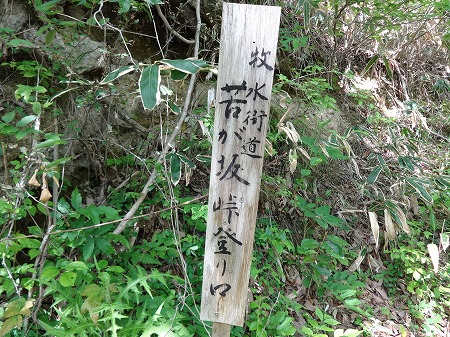 牧水街道
苦が坂峠登り口